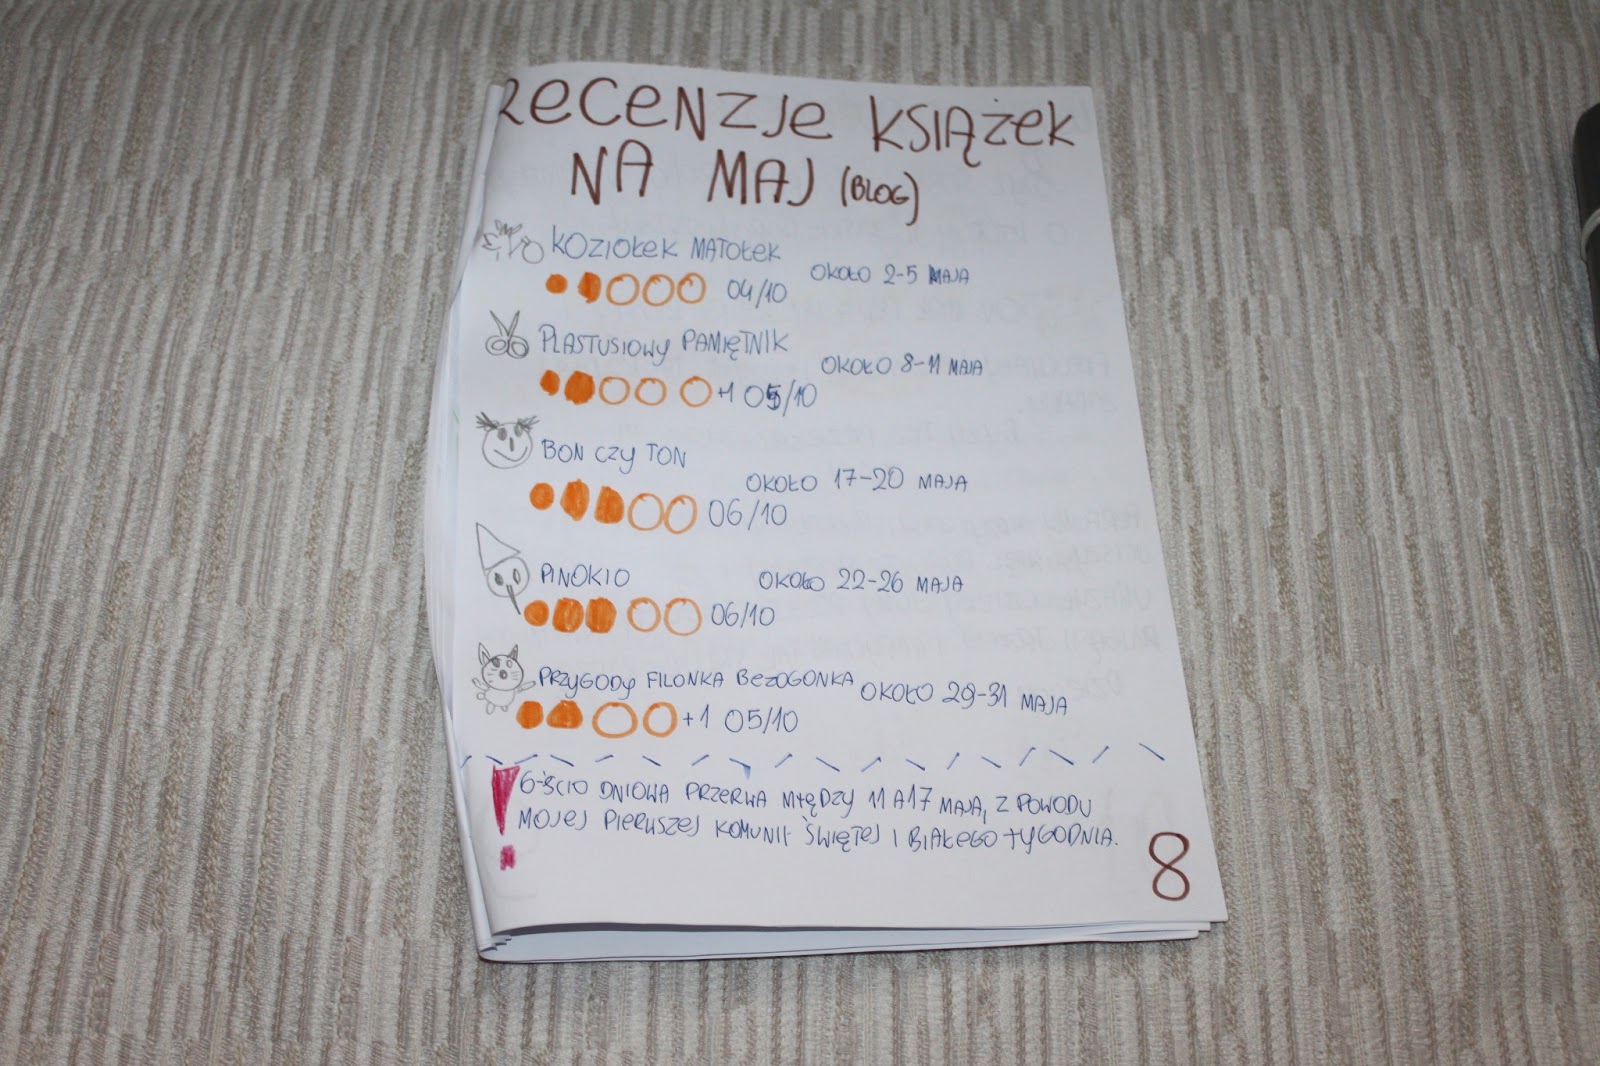 RECENZJE KSIĄŻEK
NA MAJ (BLOG)
KOZIOŁEK MATOŁEK
OKOŁO 2-5 MAJA
04/10
PLASTUSIOWY PAMIĘTNIK
OKOŁO 8-11 MAJA
+1 05/10
BON CZY TON
OKOŁO 17-20 MAJA
06/10
PINOKIO
OKOŁO 22-26 MAJA
06/10
PRZYGODY FILONKA BEZOGONKA
OKOŁO 29-31 MAJA
+1 05/10
! 6-ŚCIO DNIOWA PRZERWA MIĘDZY 11 A 17 MAJA, Z POWODU
MOJEJ PIERWSZEJ KOMUNII ŚWIĘTEJ I BIAŁEGO TYGODNIA.
8